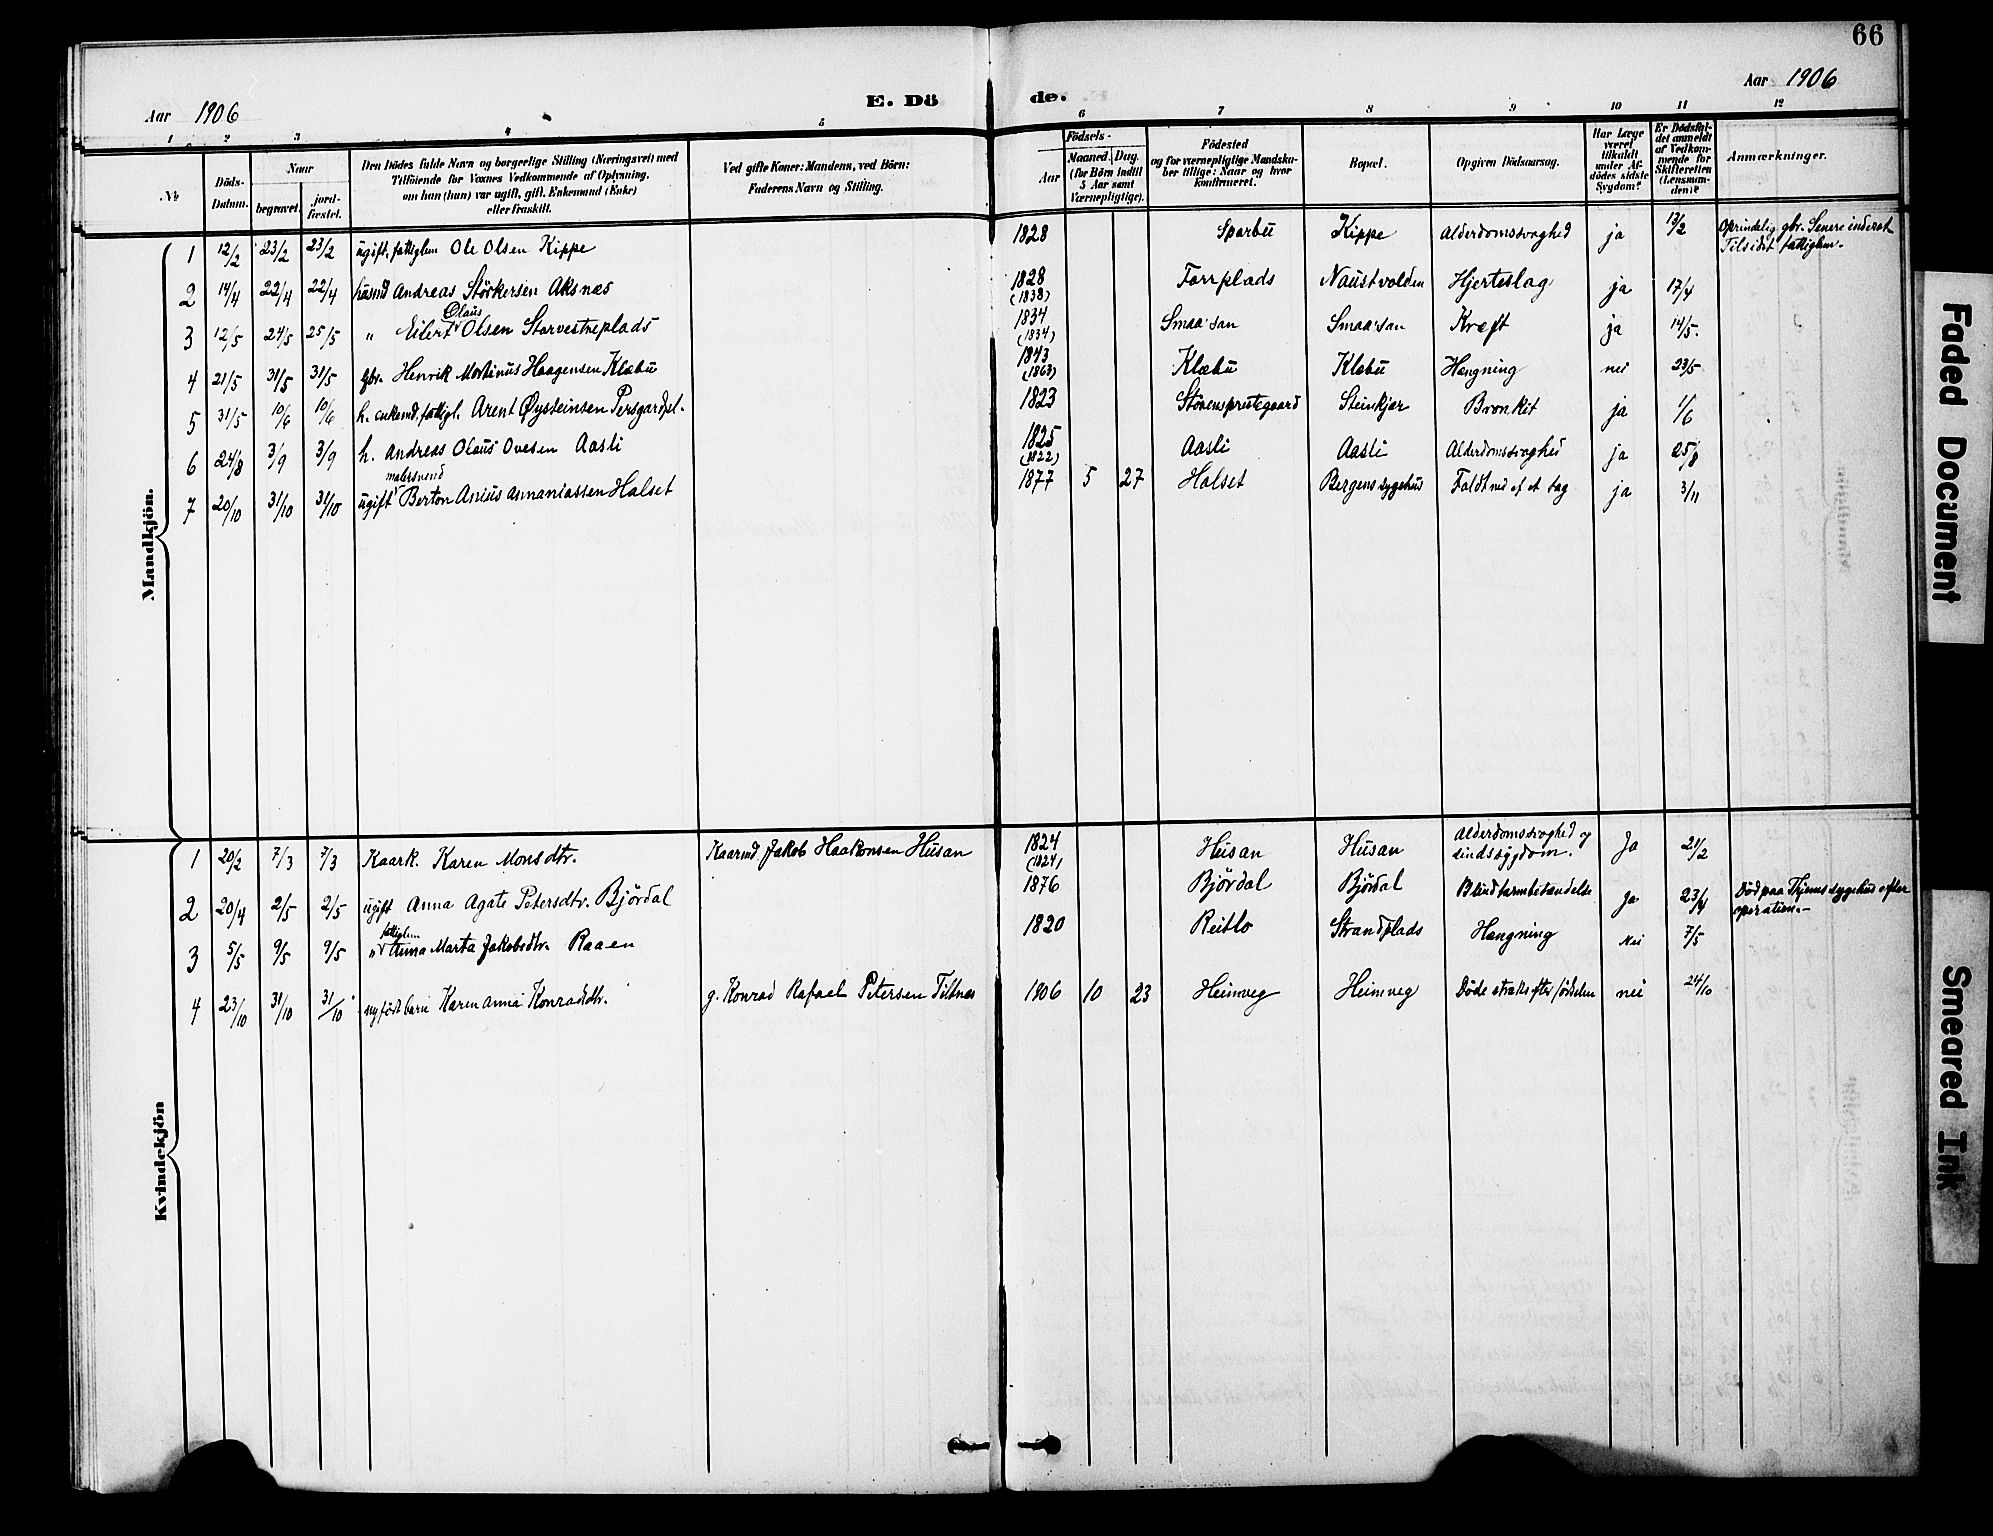 66
Aar 1906 E. Dö de. Aar 1906
1 2 3 4 5 6 7 8 9 10 11 12
No
Döds-Datum.
Naar
begravet.
jord-fæstet.
Den Dödes fulde Navn og borgerlige Stilling (Næringsvei) med
Tilföiende for Voxnes Vedkommende af Oplysning,
om han (hun) var ugift, gift, Enkemand (Enke)
eller fraskilt.
Ved gifte Koner: Mandens, ved Börn:
Faderens Navn og Stilling.
Födsels-
Aar
Maaned. Dag.
(for Börn indtil
5 Aar samt
Værnepligtige).
Födested
og for værnepligtige Mandska-
ber tillige: Naar og hvor
konfirmeret.
Bopæl.
Opgiven Dödsaarsag.
Har Læge
været
tilkaldt
under Af-
dödes sidste
Sygdom?
Er Dödsfal-
det anmeldt
af Vedkom-
mende for
Skifteretten
(Lensman-
den)?
Anmærkninger.
Mandkjön.
1 12/2 23/2 23/2 ugift. fattiglem Ole Olsen Kippe 1828 Sparbu Kippe Alderdomssvaghed ja 13/2 Oprindelig gbr. Senere inderst
Tilsidst fattiglem.
2 14/4 22/4 22/4 husmd Andreas Störkersen Aksnæs 1828 (1838) Forrplads Naustvolden Hjerteslag ja 17/4
Olaus
3 12/5 24/5 25/5 " Eilert Olsen Storvestreplads 1834 (1834) Smaa'san Smaa'san Kræft ja 14/5.
4 21/5 31/5 31/5 Gbr. Henrik Martinus Haagensen Klæbu 1843 (1863) Klæbu Klæbu Hængning nei 23/5
5 31/5 10/6 10/6 h. enkemd. fattigl. Arent Øysteinsen Persgardpl. 1823 Störensprestegaard Steinkjær Bronkit ja 1/6
6 24/8 3/9 3/9 h. Andreas Olaus Ovesen Aasli 1825 (1822) Aasli Aasli Alderdomssvaghed ja 25/8
malersvend
7 20/10 31/10 31/10 ugift Berton Anius Annaniassen Halset 1877 5 27 Halset Bergens sygehus Faldt ned af et tag ja 3/11
Kvindekjön
1 20/2 7/3 7/3 Kaark. Karen Monsdtr. Kaarmd. Jakob Haakonsen Husan 1824 (1824) Husan Husan Alderdomssvaghed og
sindssygdom. Ja 21/2
2 20/4 2/5 2/5 ugift Anna Agate Petersdtr. Björdal 1876 Björdal Björdal Blindtarmbetændelse Ja 23/4 Död paa Thjems sygehus efter
operation.
fattiglem
3 5/5 9/5 9/5 " Anna Marta Jakobsdtr. Raaen 1820 Reitlo Strandplads Hængning Nei 7/5
4 23/10 31/10 31/10 nyfödt barn Karen Anna Konradsdtr. g. Konrad Rafael Petersen Tiltnes 1906 10 23 Heimveg Heimveg Döde straks efter födselen nei 24/10
Faded Document
Smeared Ink